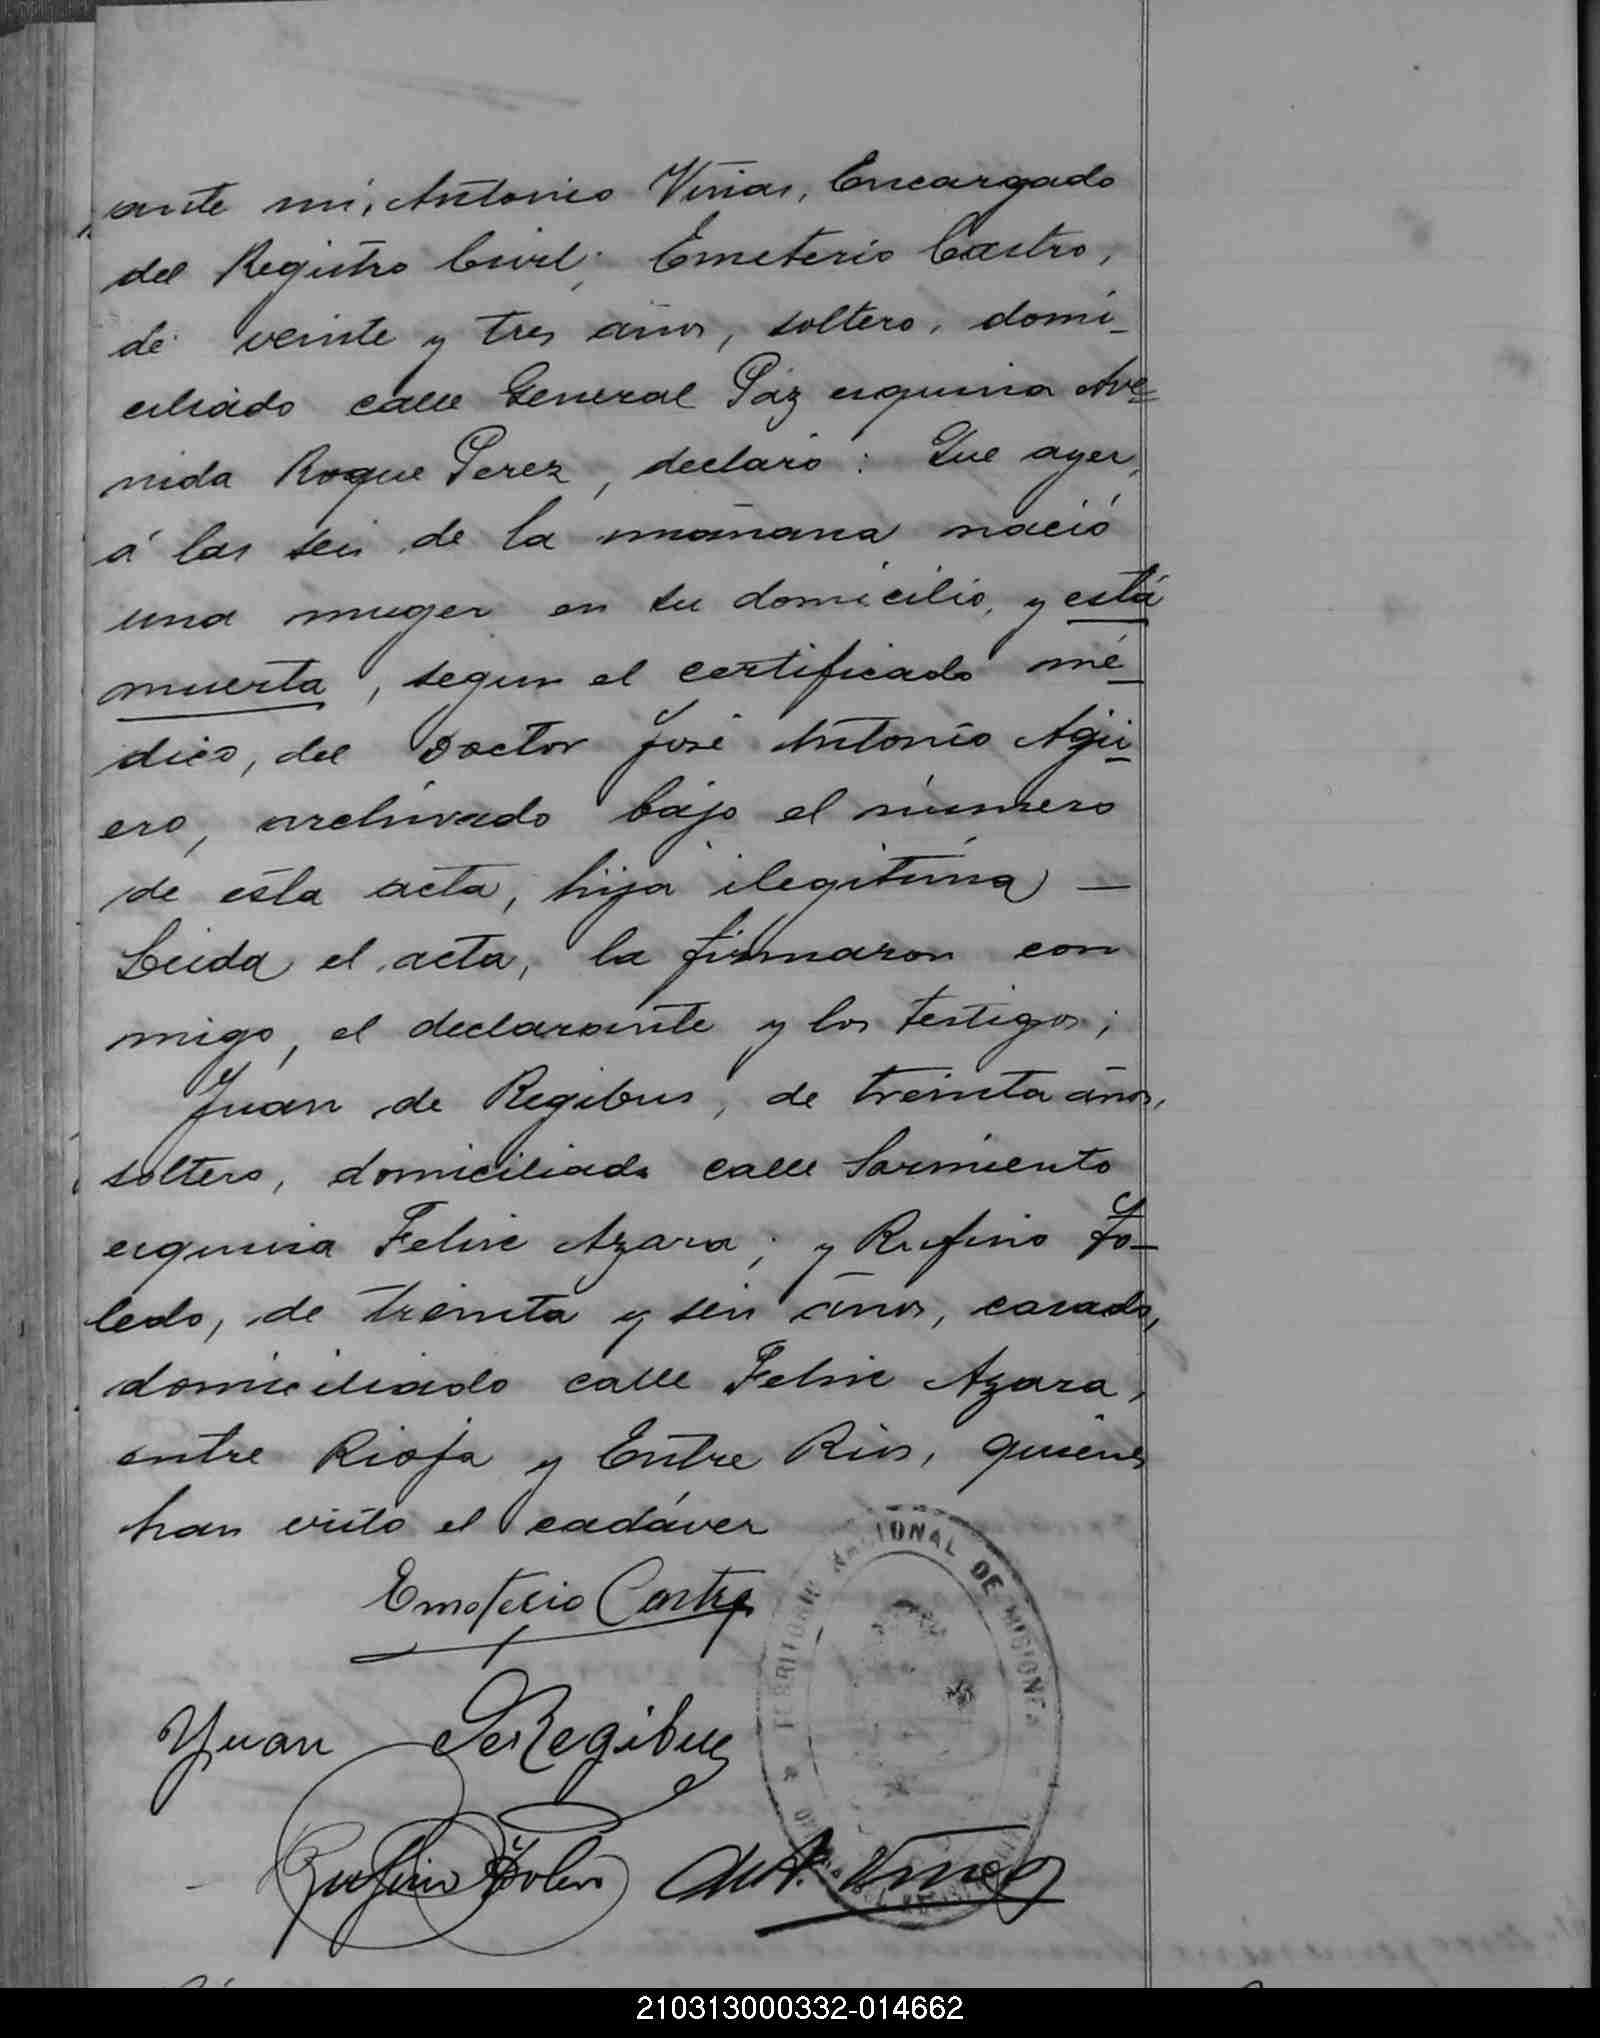 ante mi, Antonio Viñas, Encargado
del Registro Civil; Emeterio Castro,
de veinte y tres años, soltero, domi-
ciliado calle General Paz esquina Ave-
nida Roque Perez, declaró: Que ayer,
á las seis de la mañana nació
una muger en su domicilio, y está
muerta, segun el certificado mé-
dico, del Doctor José Antonio Agü-
ero, archivado bajo el número
de ésta acta, hija ilegitima —
Leida el acta, la firmaron con
migo, el declarante y los testigos;
Juan de Regibus, de treinta años,
soltero, domiciliado calle Sarmiento
esquina Felix Azara; y Rufino To-
ledo, de treinta y seis años, casado,
domiciliado calle Felix Azara,
entre Rioja y Entre Rios, quienes
han visto el cadáver
Emeterio Castro
TERRITORIO NACIONAL DE MISIONES
Juan DeRegibus
Rufino Toledo Ant. Viñas
210313000332-014662